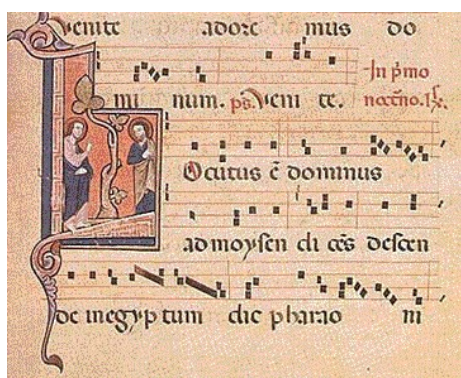 Venite adore mus do
In p̄mo
mi num. ps. Veni te. noct̄no. ℟.
Ocutus ē dominus
ad moysen di cēs descen
de in egyp tum dic pharao ni